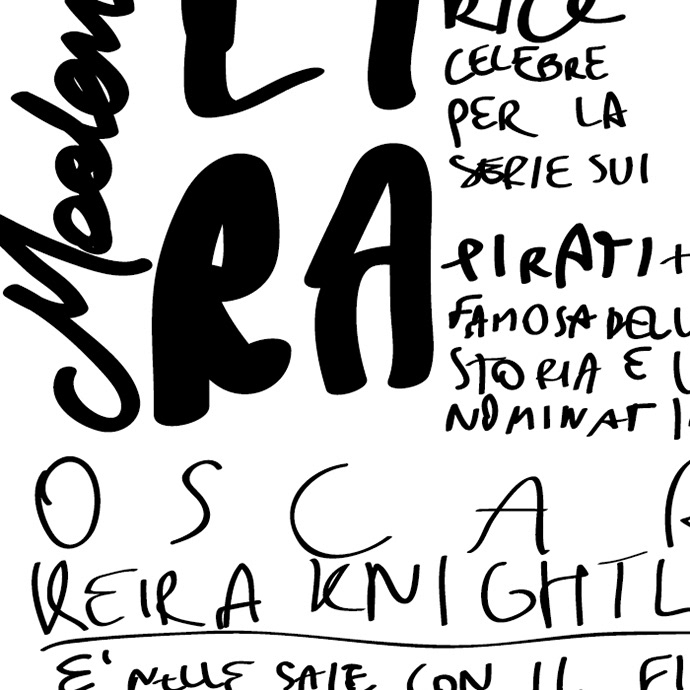 CELEBRE
PER LA
SERIE SUI
PIRATI +
FAMOSA DELL
STORIA E
NOMINAT
RA
OSCA
KEIRA KNIGHTL
E' NELLE SALE CON IL